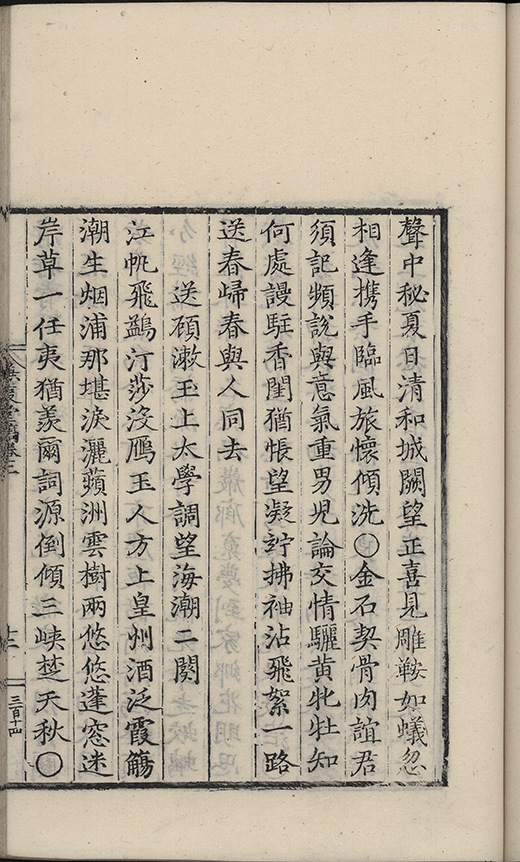 聲中秘夏日清和城闕望正喜見雕鞍如蟻忽
相逢携手臨風旅懷傾洗〇金石契骨肉誼君
須記頻說與意氣重男児論交情驪黃牝牡知
何處謾駐香閨猶悵望凝竚拂袖沾飛絮一路
送春歸春與人同去
送碩漱玉上太學調望海潮二闋
江帆飛鷁汀莎沒鴈玉人方上皇州酒泛霞觴
潮生烟浦那堪淚灑蘋洲雲樹兩悠悠蓬窓迷
岸草一任夷猶羨爾詞源倒傾三峽楚天秋〇
十二
三百十四